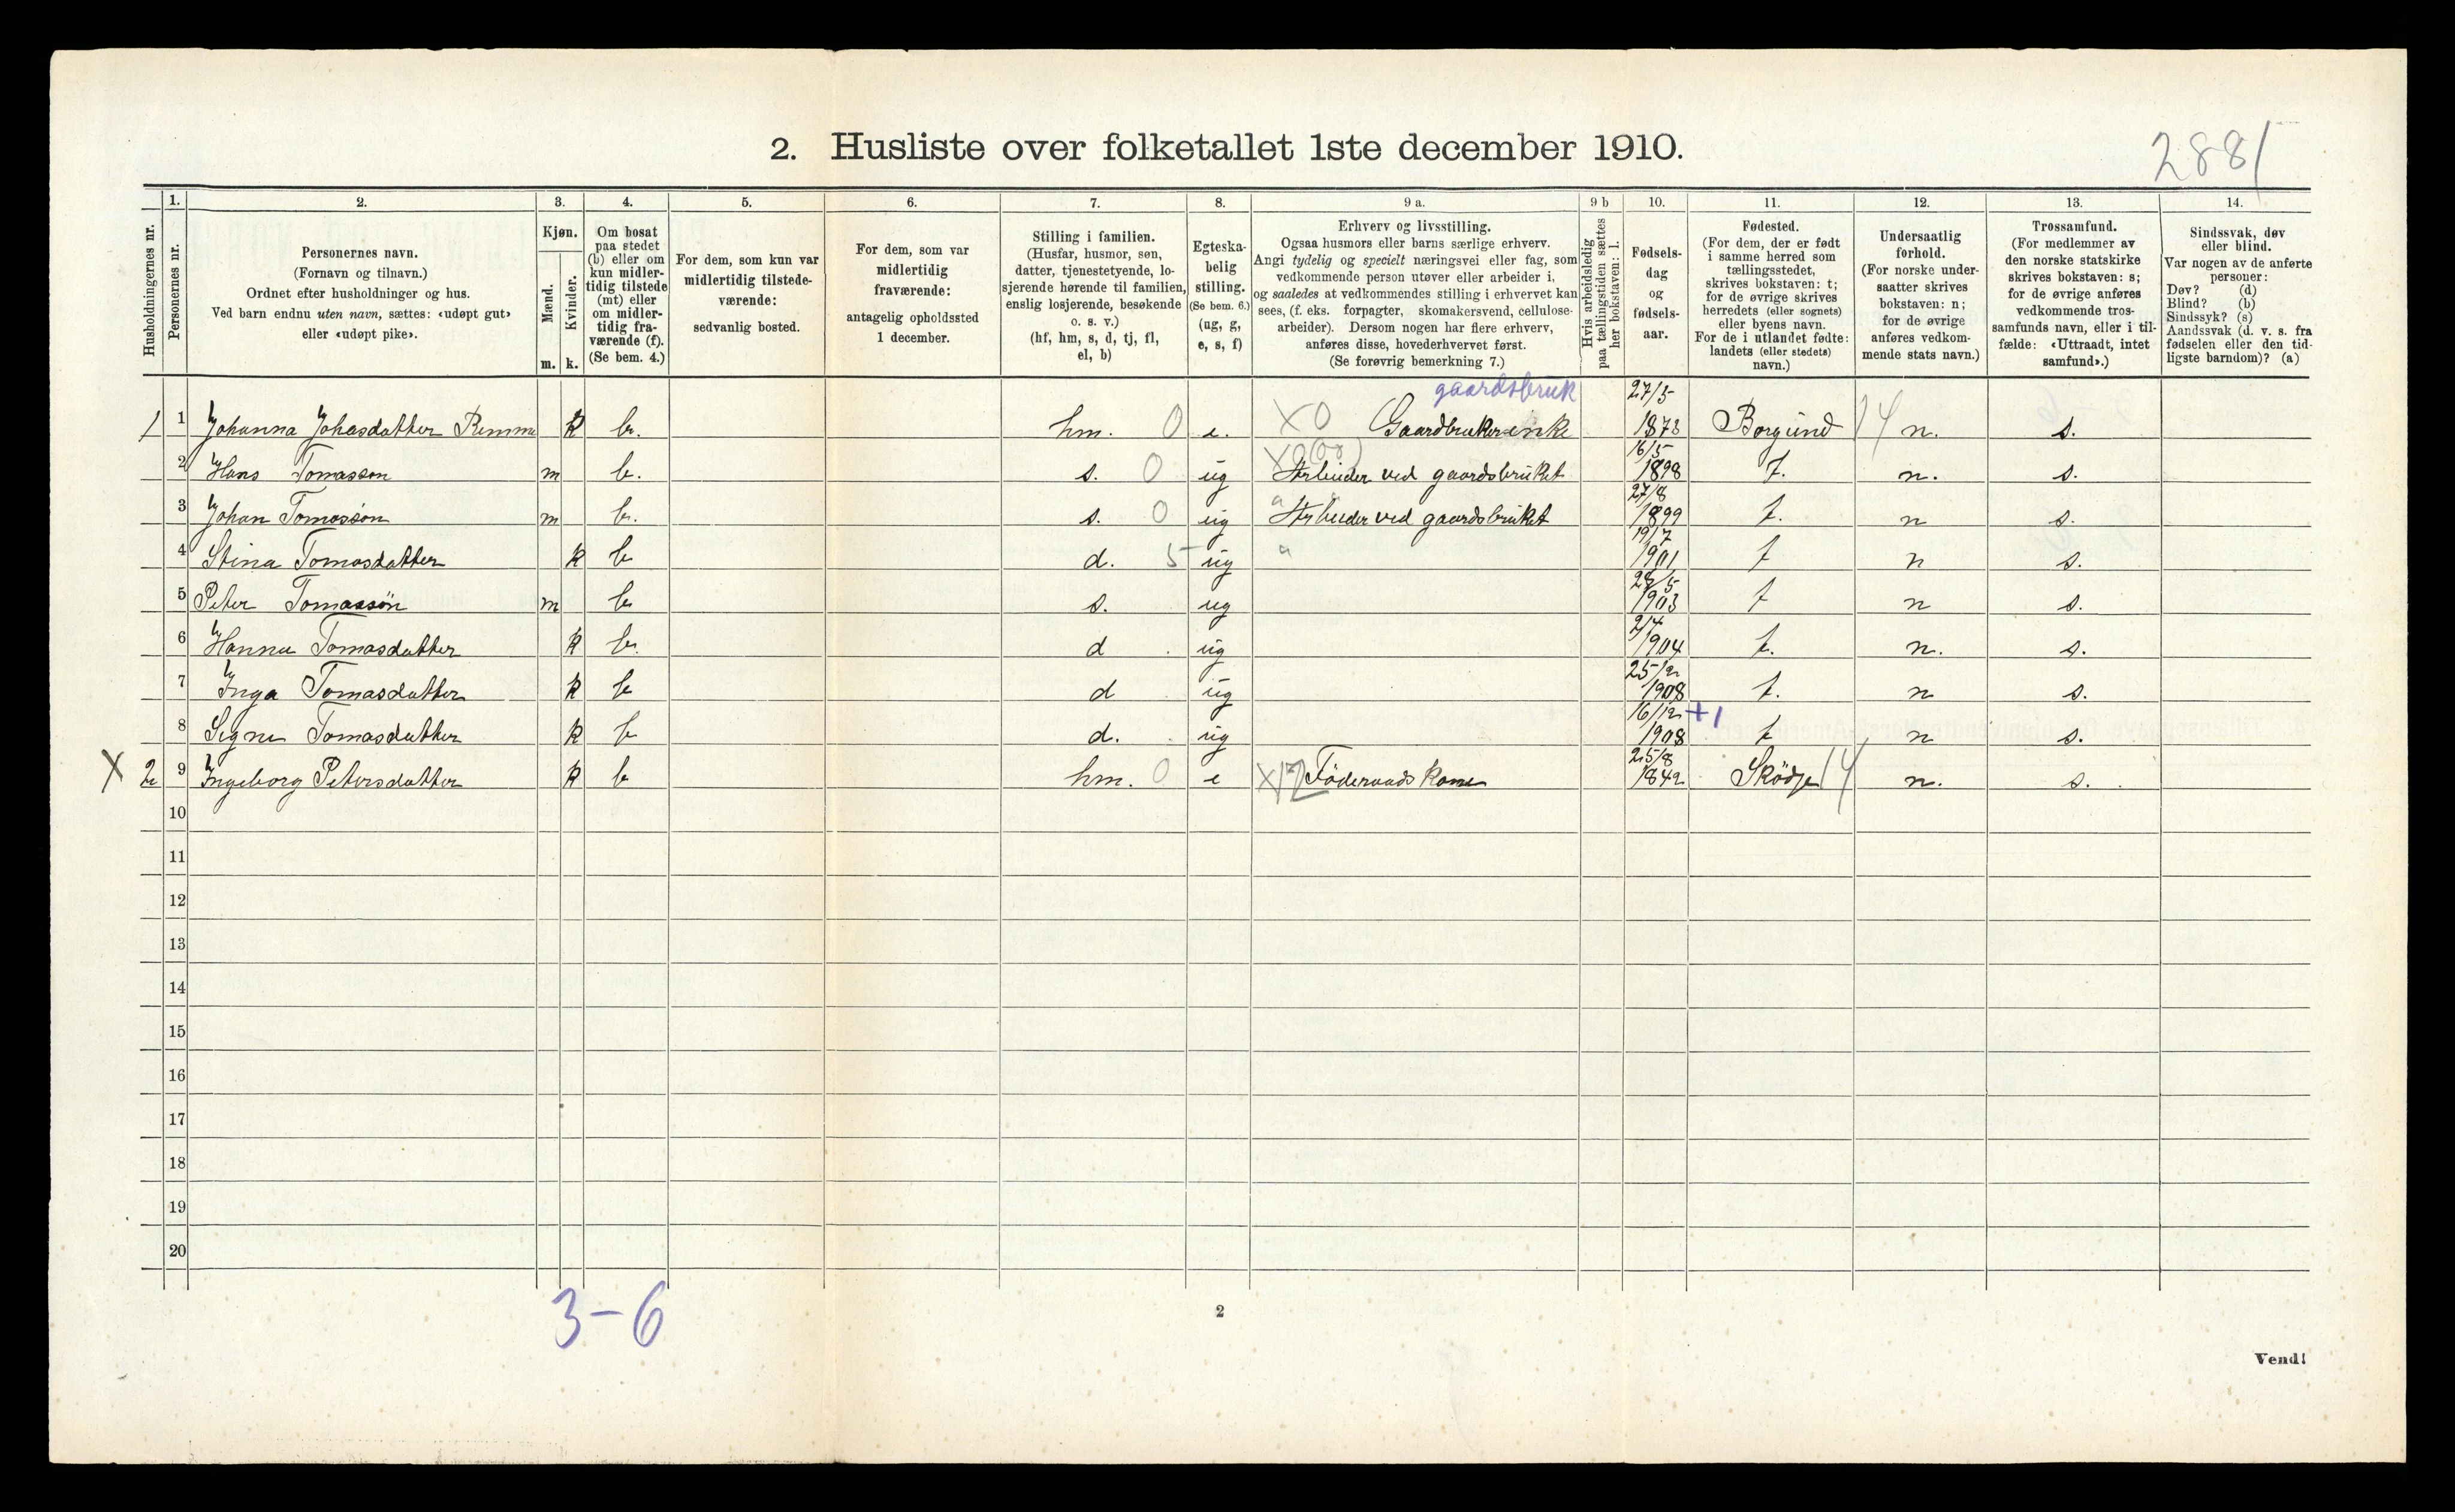 2881
2. Husliste over folketallet 1ste december 1910.
Husholdningernes nr.
1.
Personernes nr.
2.
Personernes navn.
(Fornavn og tilnavn.)
Ordnet efter husholdninger og hus.
Ved barn endnu uten navn, sættes: «udøpt gut»
eller «udøpt pike».
3.
Kjøn.
Mænd.
Kvinder.
m. k.
4.
Om bosat
paa stedet
(b) eller om
kun midler-
tidig tilstede
(mt) eller
om midler-
tidig fra-
værende (f).
(Se bem. 4.)
5.
For dem, som kun var
midlertidig tilstede-
værende:
sedvanlig bosted.
6.
For dem, som var
midlertidig
fraværende:
antagelig opholdssted
1 december.
7.
Stilling i familien.
(Husfar, husmor, søn,
datter, tjenestetyende, lo-
sjerende hørende til familien,
enslig losjerende, besøkende
o. s. v.)
(hf, hm, s, d, tj, fl,
el, b)
8.
Egteska-
belig
stilling.
(Se bem. 6.)
(ug, g,
e, s, f)
9 a.
Erhverv og livsstilling.
Ogsaa husmors eller barns særlige erhverv.
Angi tydelig og specielt næringsvei eller fag, som
vedkommende person utøver eller arbeider i,
og saaledes at vedkommendes stilling i erhvervet kan
sees, (f. eks. forpagter, skomakersvend, cellulose-
arbeider). Dersom nogen har flere erhverv,
anføres disse, hovederhvervet først.
(Se forøvrig bemerkning 7.)
9 b
Hvis arbeidsledig
paa tællingstiden sættes
her bokstaven: l.
10.
Fødsels-
dag
og
fødsels-
aar.
11.
Fødested.
(For dem, der er født
i samme herred som
tællingsstedet,
skrives bokstaven: t;
for de øvrige skrives
herredets (eller sognets)
eller byens navn.
For de i utlandet fødte:
landets (eller stedets)
navn.)
12.
Undersaatlig
forhold.
(For norske under-
saatter skrives
bokstaven: n;
for de øvrige
anføres vedkom-
mende stats navn.)
13.
Trossamfund.
(For medlemmer av
den norske statskirke
skrives bokstaven: s;
for de øvrige anføres
vedkommende tros-
samfunds navn, eller i til-
fælde: «Uttraadt, intet
samfund».)
14.
Sindssvak, døv
eller blind.
Var nogen av de anførte
personer:
Døv? (d)
Blind? (b)
Sindssyk? (s)
Aandssvak (d. v. s. fra
fødselen eller den tid-
ligste barndom)? (a)
gaardsbruk
1 1 Johanna Johasdatter Remme k b. hm. 0 e. X0 Gaardbrukerenke 27/5 1873 Borgund 14 n. s.
2 Hans Tomasson m b. s. 0 ug Arbeider ved gaardsbruket 16/5 1898 t. n. s.
3 Johan Tomassön m b. s. 0 ug Arbeider ved gaardsbruket 27/8 1899 t. n s.
4 Stina Tomasdatter k b d. 5 ug " 19/7 1901 t n s.
5 Peter Tomassön m b s. ug 28/5 1903 t n s.
6 Hanna Tomasdatter k b. d ug 2/4 1904 t. n. s.
7 Inga Tomasdatter k b d ug 25/2 1908 t. n s.
8 Signe Tomasdatter k b d. ug 16/12 1908 +1 t n s.
X 2 9 Ingeborg Petersdatter k b hm. 0 e X12 Föderaads Kone 25/8 1842 Sködje 14 n. s.
10
11
12
13
14
15
16
17
18
19
20
3-6
2
Vend!